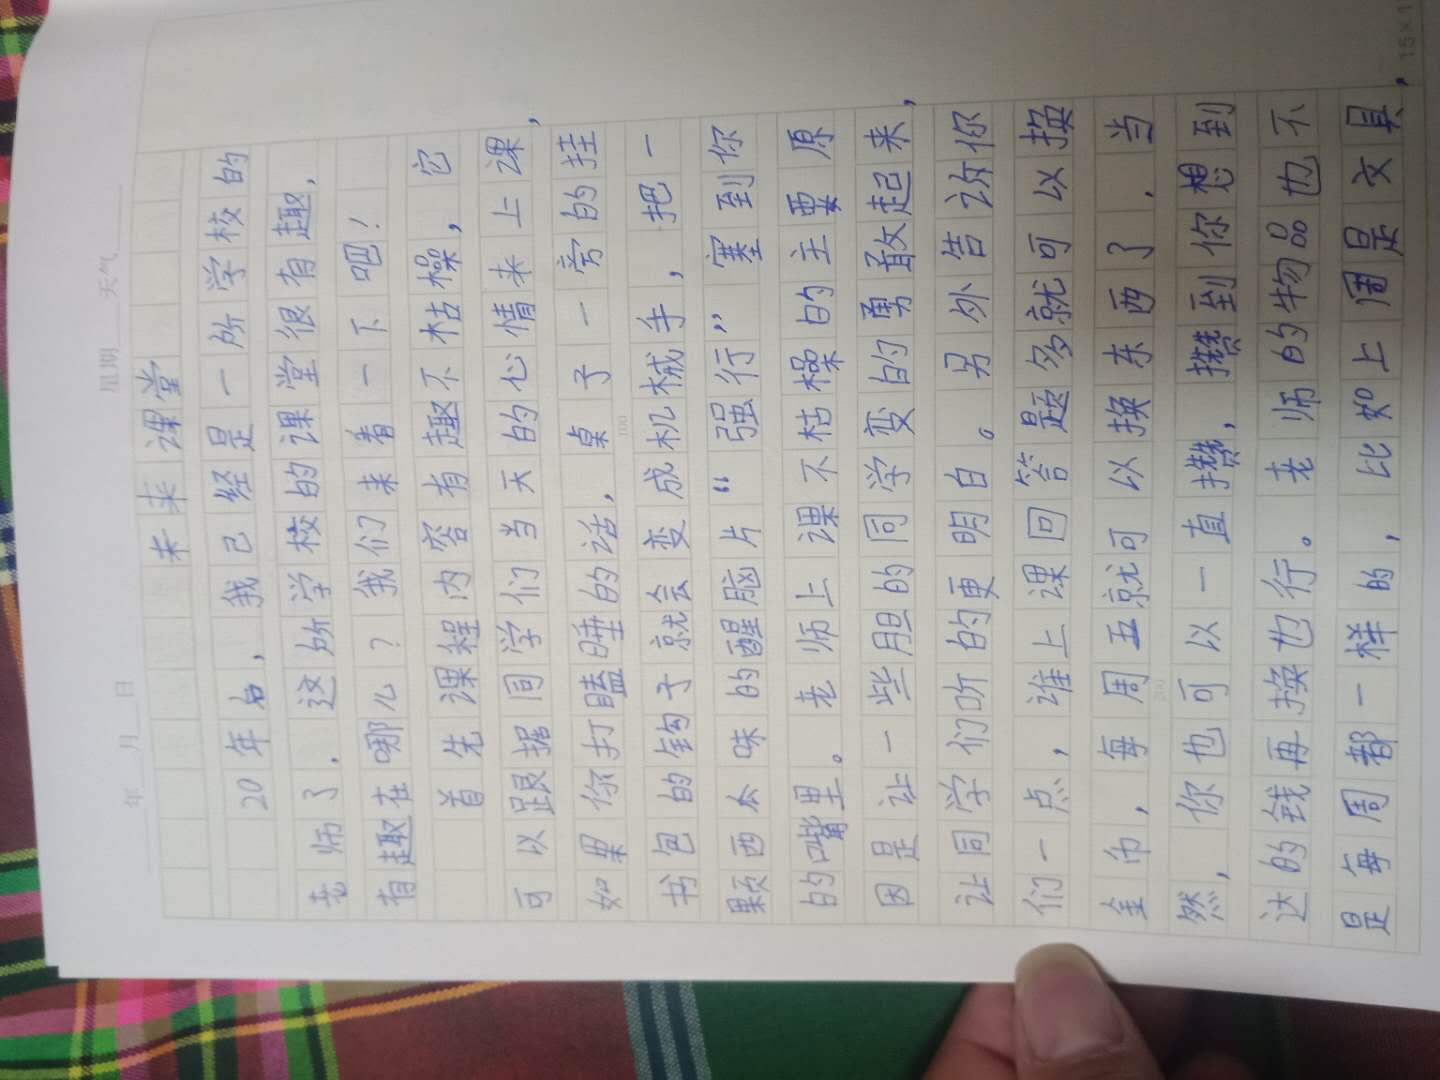 年 月 日 星期 天气
未来课堂
20年后，我已经是一所学校的
老师了．这所学校的课堂很有趣．
有趣在哪儿？我们来看一下吧！
首先课程内容有趣不枯橾，它
可以跟据同学们当天的心情来上课，
如果你打瞌睡的话．桌子一旁的挂
书包的钩子就会变成机械手，把一
颗西瓜味的醒脑片“强行”塞到你
的嘴里。老师上课不枯橾的主要原
因是让一些胆的同学变的勇敢起来，
让同学们听的更明白。另外告诉你
们一点，谁上课回答题多就可以换
金币，每周五就可以换东西了．当
然，你也可以一直攒，攒到你想到
达的钱再换也行。老师的物品也不
是每周都一样的，比如上周是文具，
100
200